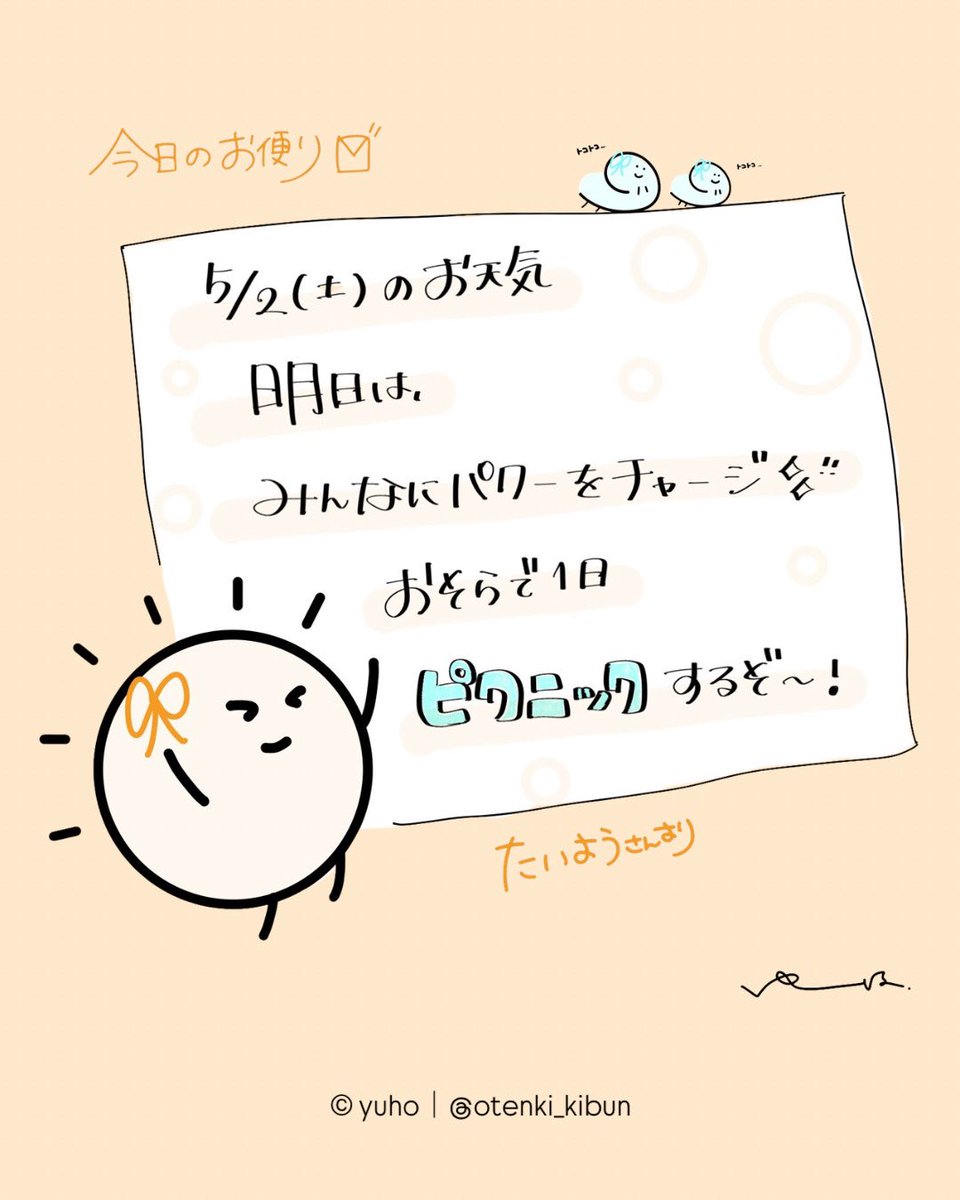 今日のお便り
トコトコ…
トコトコ…
5/2(土)のお天気
明日は、
みんなにパワーをチャージ
おそらで1日
ピクニックするぞ～！
たいようさんより
© yuho｜@otenki_kibun